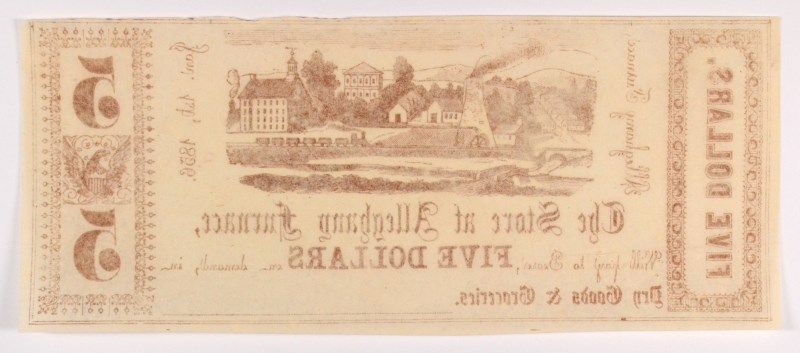 FIVE DOLLARS.
Jan. 1st, 1856
5
5
The Store at Alleghany Furnace,
Will pay to Bearer, FIVE DOLLARS on demand, in
Dry Goods & Groceries.